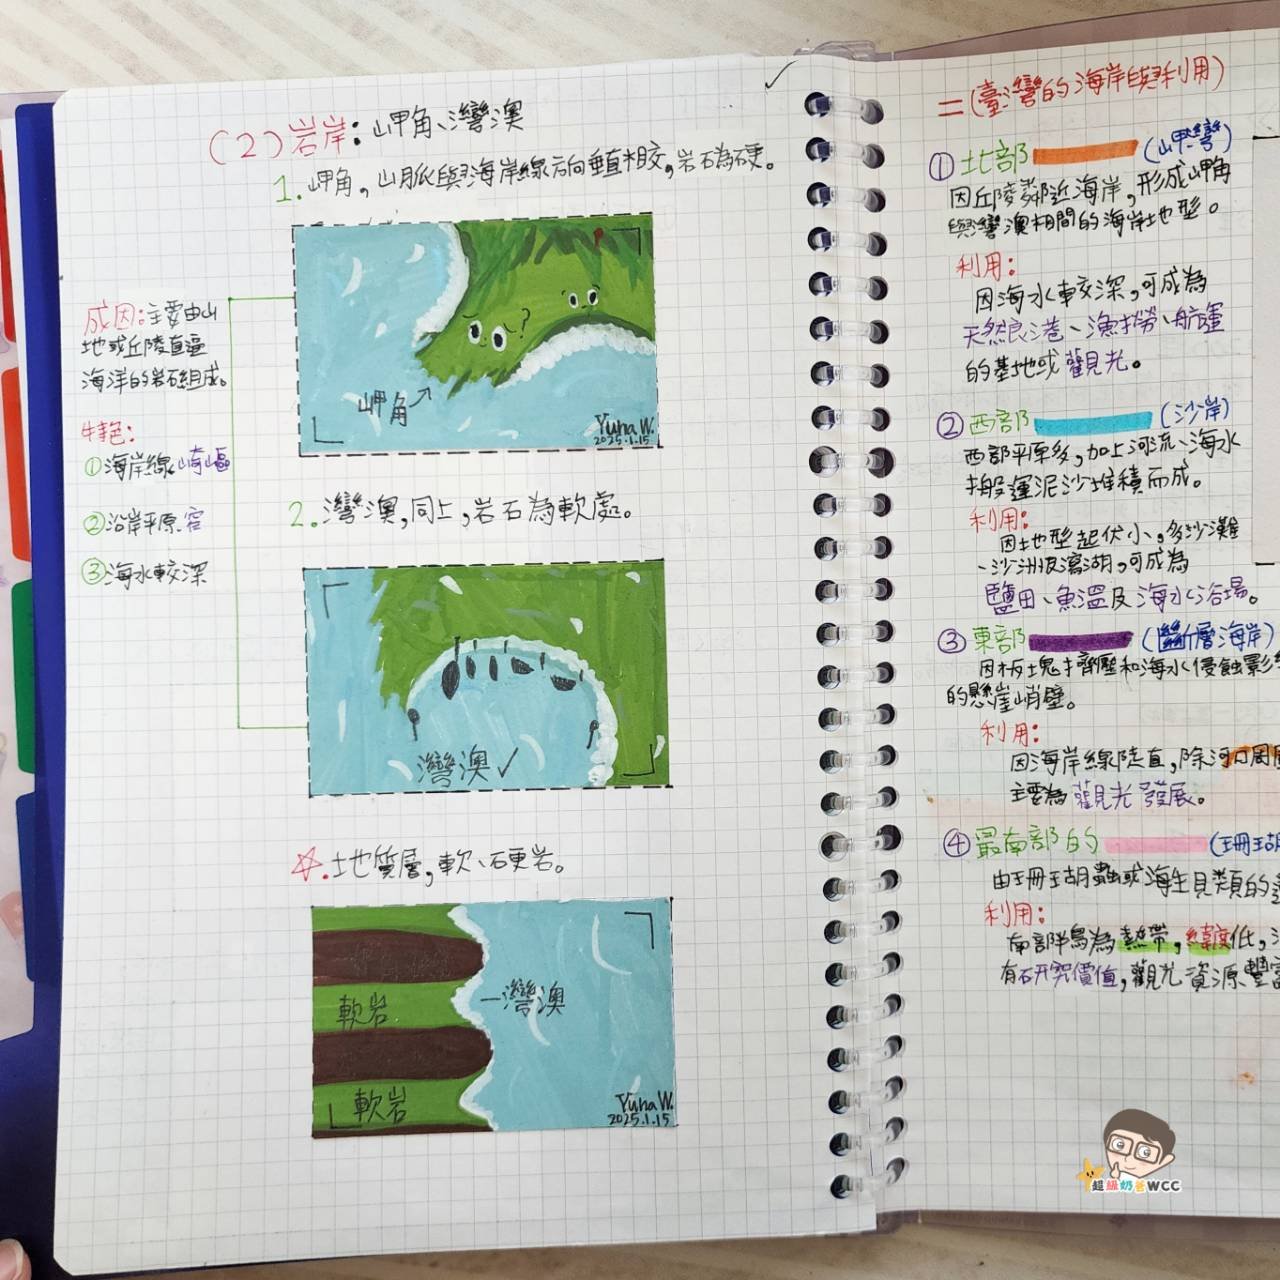 (2)岩岸：岬角、灣澳
1. 岬角，山脈與海岸線方向垂直相交，岩石為硬。
岬角
Yuna W.
2025.1.15
成因：主要由山
地或丘陵直逼
海洋的岩石組成。
特色：
①海岸線崎嶇
②沿岸平原窄
③海水較深
2. 灣澳，同上，岩石為軟處。
灣澳✓
☆. 土地質層，軟、硬岩。
軟岩
灣澳
軟岩
Yuna W.
2025.1.15
二(臺灣的海岸與利用)
①北部 (岬灣)
因丘陵鄰近海岸，形成岬角
與灣澳相間的海岸地型。
利用：
因海水較深，可成為
天然良港、漁撈、航運
的基地或觀光。
②西部 (沙岸)
西部平原多，加上河流、海水
搬運泥沙堆積而成。
利用：
因地型起伏小，多沙灘
、沙洲很瀉湖，可成為
鹽田、魚溫及海水浴場。
③東部 (斷層海岸)
因板塊擠壓和海水侵蝕影
的懸崖峭壁。
利用：
因海岸線陡直，除河口周
主要為觀光發展。
④最南部的 (珊瑚
由珊瑚蟲或海生貝類的
利用：
南部群島為熱帶，緯度低，
有研究價值，觀光資源豐富
超級奶爸WCC